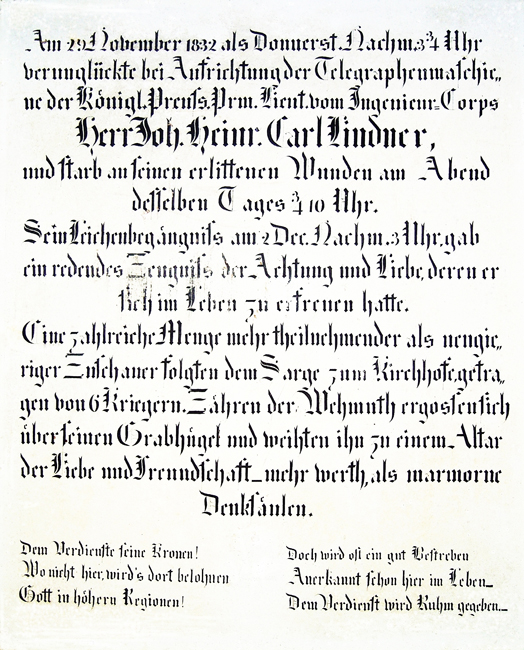 Am 29 November 1832 als Donnerst. Nachm. 3¾ Uhr
verunglückte bei Aufrichtung der Telegraphenmaschie„
ne der Königl. Preuß. Prm. Lieut. vom Ingenieur=Corps
Herr Joh. Heinr. Carl Lindner,
und starb an seinen erlittenen Wunden am Abend
desselben Tages ¾ 10 Uhr.
Sein Leichenbegängniß am 2 Dec. Nachm. 3 Uhr, gab
ein redendes Zeugniß der Achtung und Liebe, deren er
sich im Leben zu erfreuen hatte.
Eine zahlreiche Menge mehr theilnehmender als neugie„
riger Zuschauer folgten dem Sarge zum Kirchhofe, getra„
gen von 6 Kriegern. Zähren der Wehmuth ergossen sich
über seinen Grabhügel und weihten ihn zu einem Altar
der Liebe und Freundschaft_mehr werth, als marmorne
Denksäulen.
Dem Verdienste seine Kronen!
Wo nicht hier, wird's dort belohnen
Gott in höhern Regionen!
Doch wird oft ein gut Bestreben
Anerkannt schon hier im Leben_
Dem Verdienst wird Ruhm gegeben._